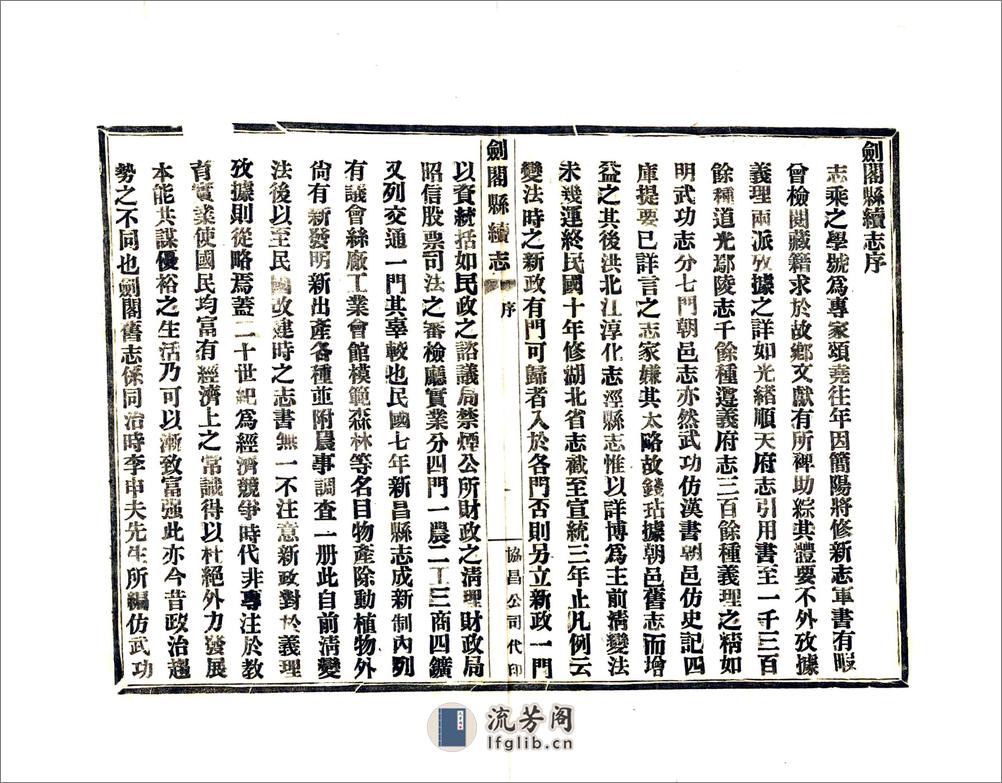 劍閣縣續志序
志乘之學號為專家頌堯往年因簡陽將修新志軍書有暇
曾檢閱藏籍求於故鄉文獻有所裨助綜其體要不外攷據
義理兩派攷據之詳如光緒順天府志引用書至一千三百
餘種道光鄢陵志千餘種遵義府志三百餘種義理之精如
明武功志分七門朝邑志亦然武功仿漢書朝邑仿史記四
庫提要已詳言之志家嫌其太略故錢坫據朝邑舊志而增
益之其後洪北江淳化志涇縣志惟以詳博為主前清變法
未幾運終民國十年修湖北省志截至宣統三年止凡例云
變法時之新政有門可歸者入於各門否則另立新政一門
劍閣縣續志
序
一
協昌公司代印
以資統括如民政之諮議局禁煙公所財政之清理財政局
昭信股票司法之審檢廳實業分四門一農二工三商四鑛
又列交通一門其辜較也民國七年新昌縣志成新制內列
有議會絲廠工業會館模範森林等名目物產除動植物外
尚有新發明新出產各種並附農事調查一冊此自前清變
法後以至民國改建時之志書無一不注意新政對於義理
攷據則從略焉蓋二十世紀為經濟競爭時代非專注於教
育實業使國民均富有經濟上之常識得以杜絕外力發展
本能共謀優裕之生活乃可以漸致富强此亦今昔政治趨
勢之不同也劍閣舊志係同治時李申夫先生所編仿武功
流芳阁
lfglib.cn